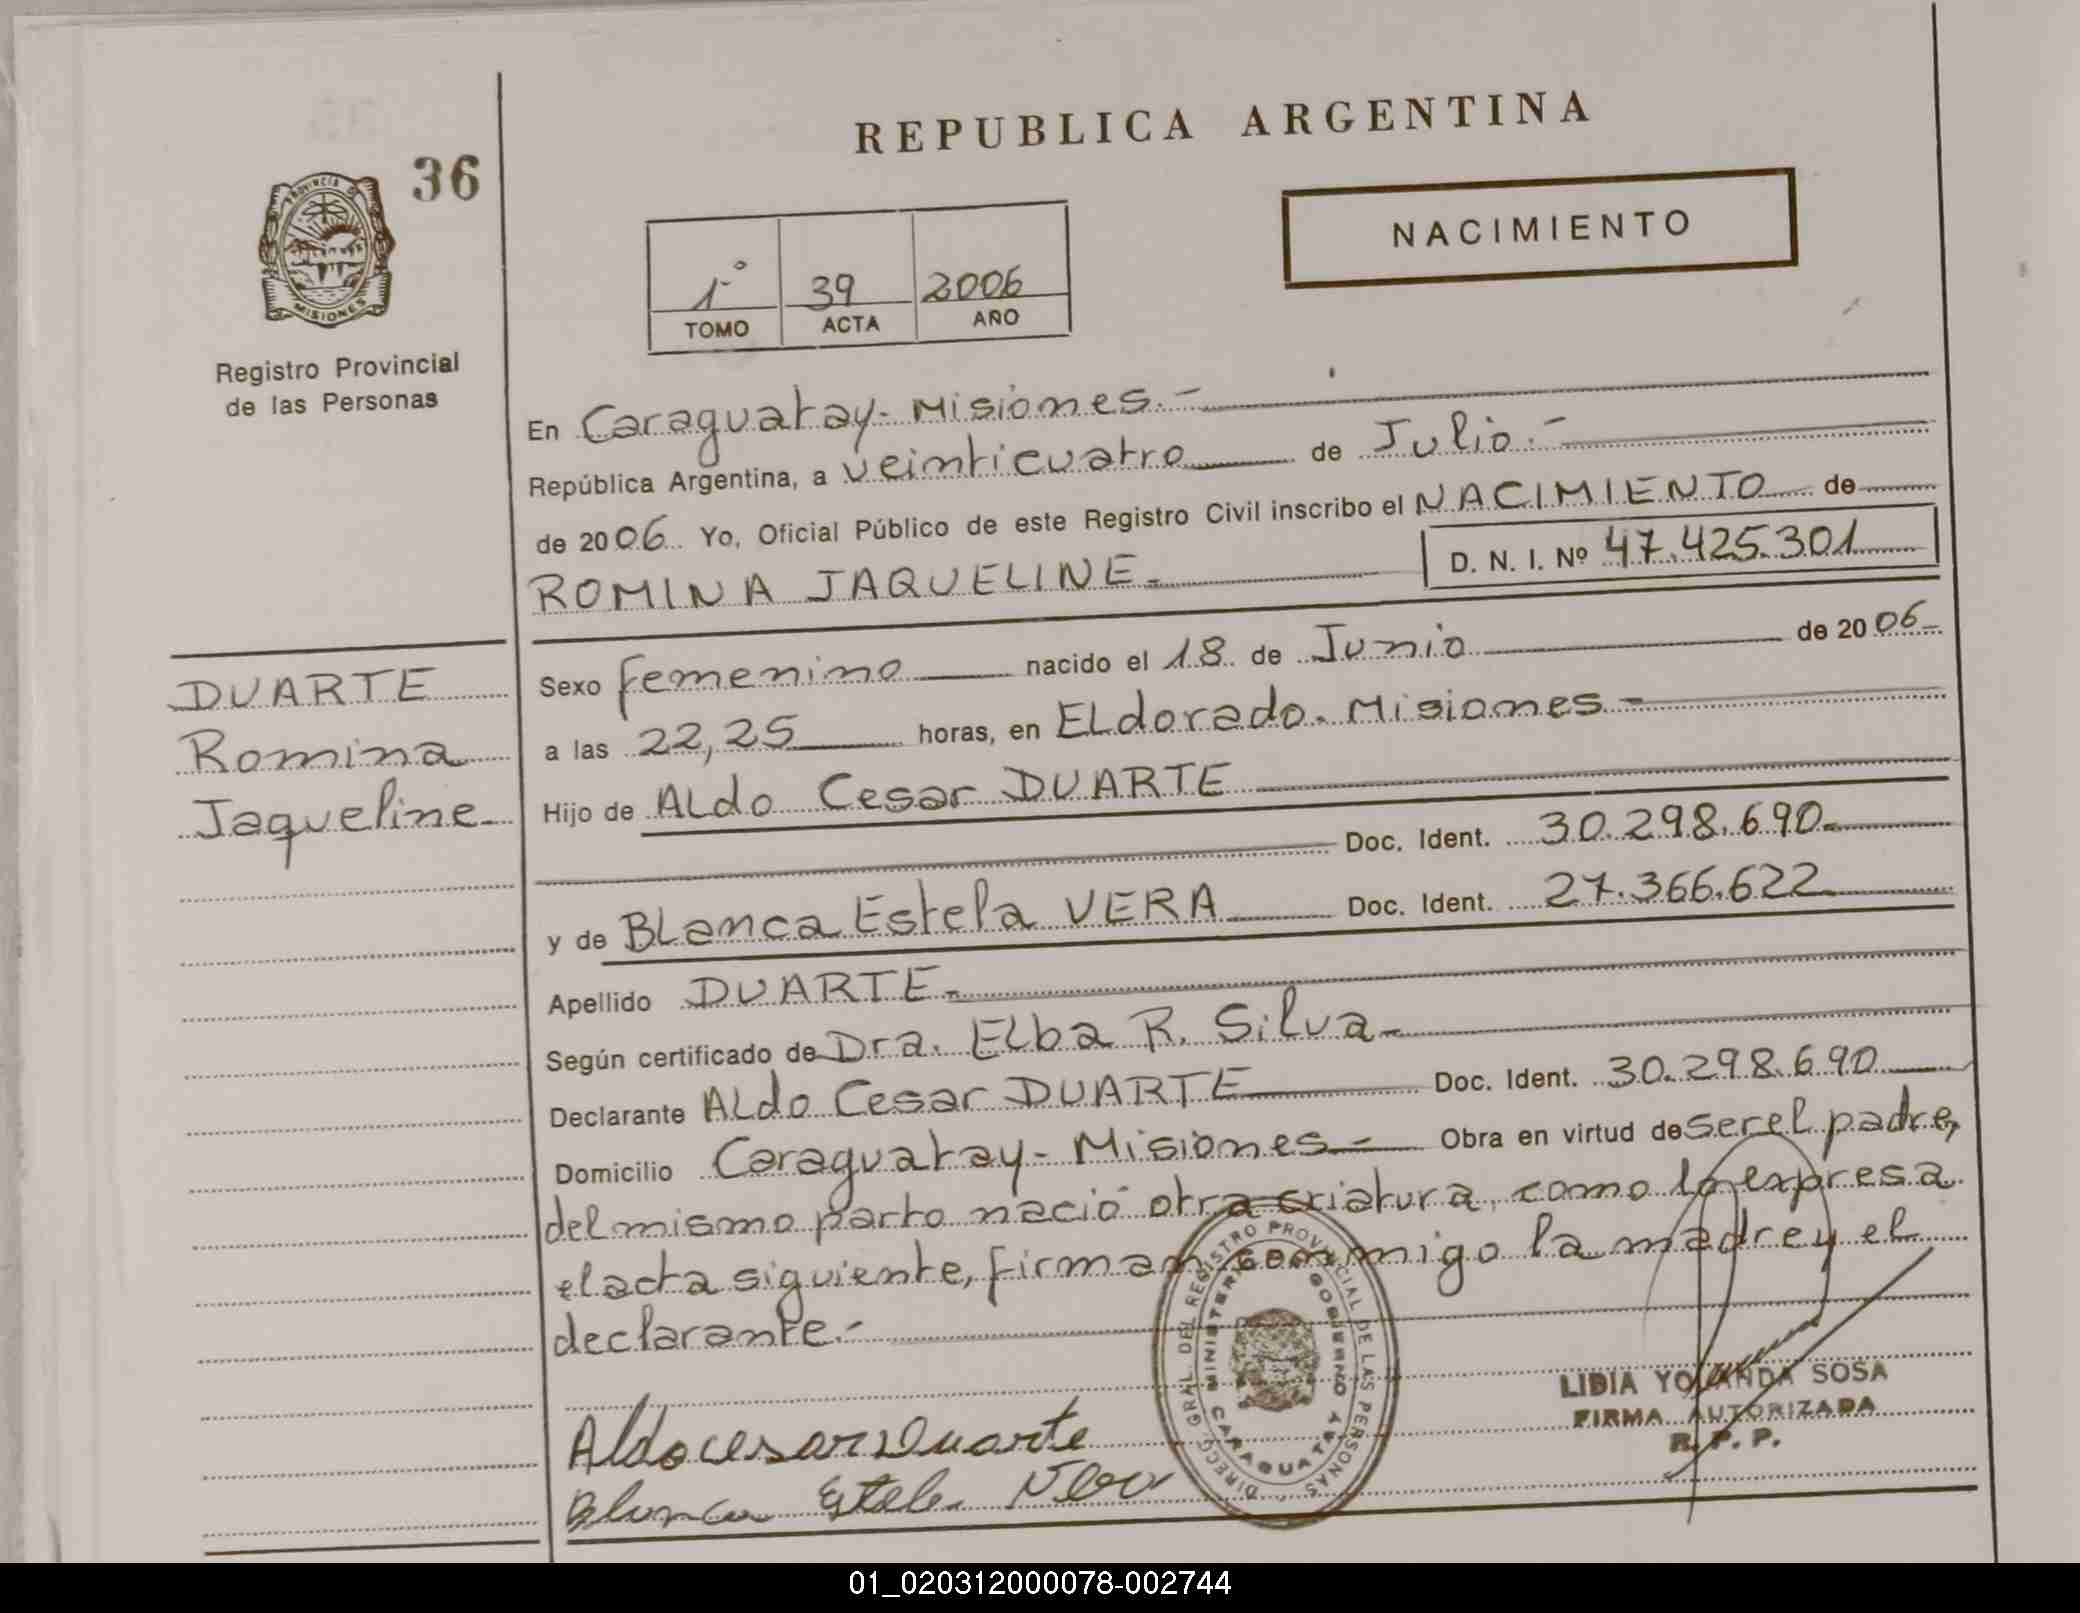 REPUBLICA ARGENTINA
36
PROVINCIA DE
MISIONES
Registro Provincial
de las Personas
NACIMIENTO
1º 39 2006
TOMO ACTA AÑO
En Caraguatay - Misiones.-
República Argentina, a veinticuatro de Julio.-
de 2006. Yo, Oficial Público de este Registro Civil inscribo el NACIMIENTO de
ROMINA JAQUELINE.- D. N. I. Nº 47.425.301
DUARTE
Romina
Jaqueline.-
Sexo femenino nacido el 18 de Junio de 2006-
a las 22,25 horas, en ELdorado. Misiones -
Hijo de ALdo Cesar DUARTE
Doc. Ident. 30.298.690.-
y de BLanca Estela VERA Doc. Ident. 27.366.622
Apellido DUARTE.-
Según certificado de Dra. ELba R. Silva.-
Declarante ALdo Cesar DUARTE Doc. Ident. 30.298.690
Domicilio Caraguatay - Misiones.- Obra en virtud de ser el padre,
del mismo parto nació otra criatura, como lo expresa
el acta siguiente, firman conmigo la madre y el
declarante.-
Aldo cesar Duarte
Blanca Estela Vera
DIRECC. GRAL. DEL REGISTRO PROVINCIAL DE LAS PERSONAS
MINISTERIO GOBIERNO
CARAGUATAY
LIDIA YOLANDA SOSA
FIRMA AUTORIZADA
R. P. P.
01_020312000078-002744